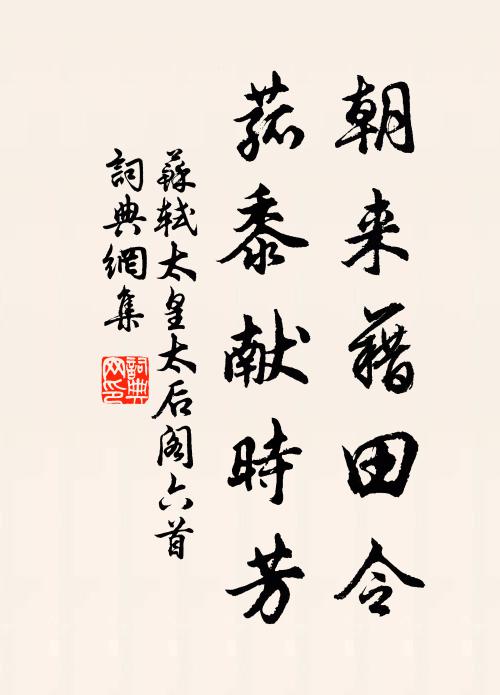 朝来藉田令
菰黍献時芳
蘇轼太皇太后阁六首
詞典網集
詞典网印